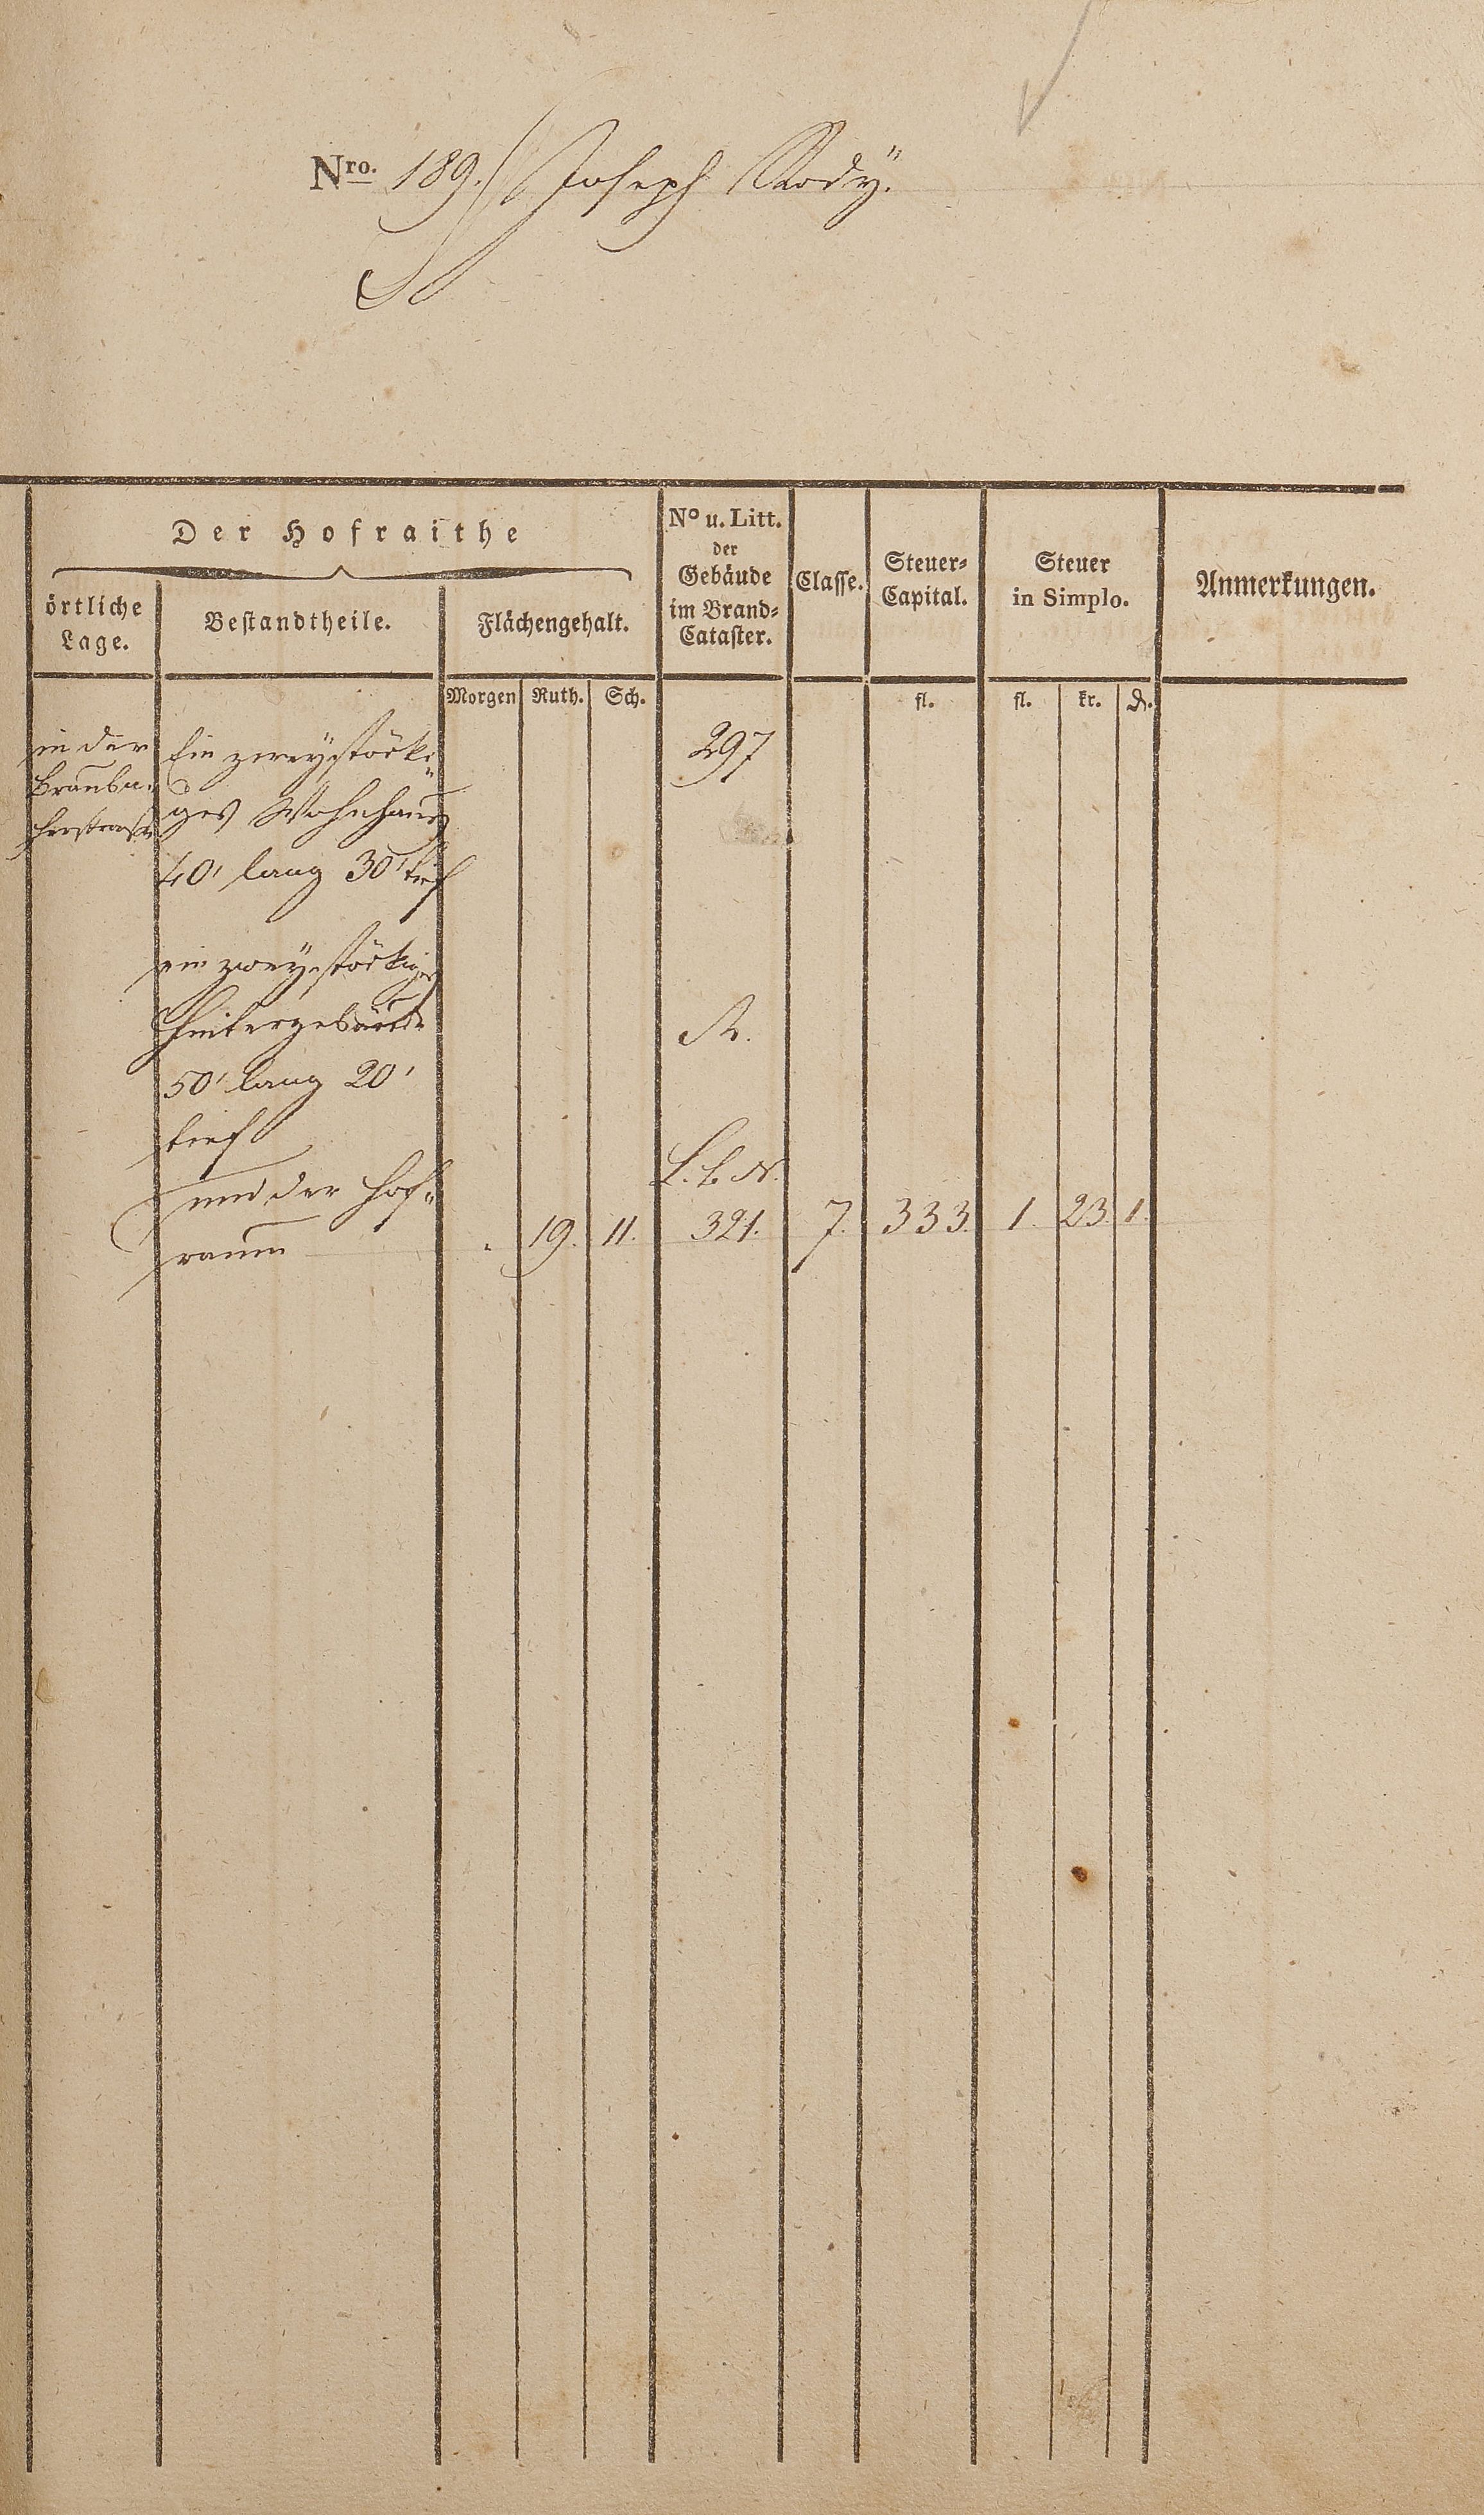 Nro. 189. Joseph Rody.
Der Hofraithe
örtliche
Lage.
Bestandtheile.
Flächengehalt.
No u. Litt.
der
Gebäude
im Brand-
Cataster.
Classe.
Steuer-
Capital.
Steuer
in Simplo.
Anmerkungen.
Morgen Ruth. Sch. fl. fl. kr. d.
in der
Brauba-
cherstrasse
Ein zweystöcki-
ges Wohnhaus
40' lang 30' tief
297
ein zweystöckiges
Hintergebäude
50' lang 20'
tief
und der Hof-
raum
19. 11. 321. 7. 333. 1. 23. 1.